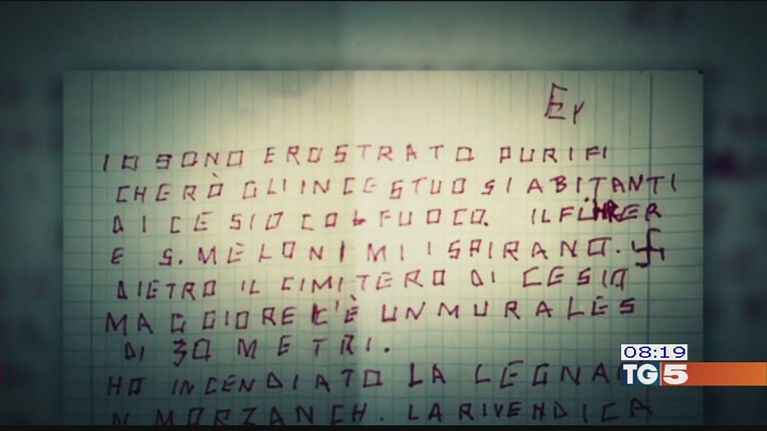 Er
IO SONO EROSTRATO. PURIFI
CHERÒ GLI INCESTUOSI ABITANTI
DI CESIO COL FUOCO. IL FÜHRER
E S. MELONI MI ISPIRANO.
DIETRO IL CIMITERO DI CESIO
MAGGIORE C'È UN MURALES
DI 30 METRI.
HO INCENDIATO LA LEGNAI
N MORZANCH. LA RIVENDICA
08:19
TG5